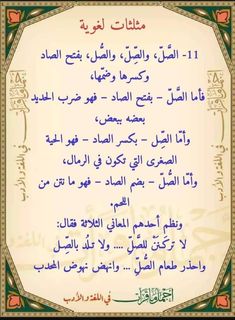 مثلثات لغوية
11- الصَّلّ، والصِّلّ، والصُّل، بفتح الصاد
وكسرها وضمّها،
فأما الصَّلّ – بفتح الصاد – فهو ضرب الحديد
بعضه ببعض،
وأمّا الصِّل – بكسر الصاد – فهو الحية
الصغرى التي تكون في الرمال،
وأمّا الصُّلّ – بضم الصاد – فهو ما نتن من
اللحم.
ونظم أحدهم المعاني الثلاثة فقال:
لا تركَنَنْ للصَّلِّ .... ولا تلُذ بالصِّل
واحذر طعام الصُّلِّ ... وانهض نهوض المحدب
أجمل ما قرأت في اللغة والأدب